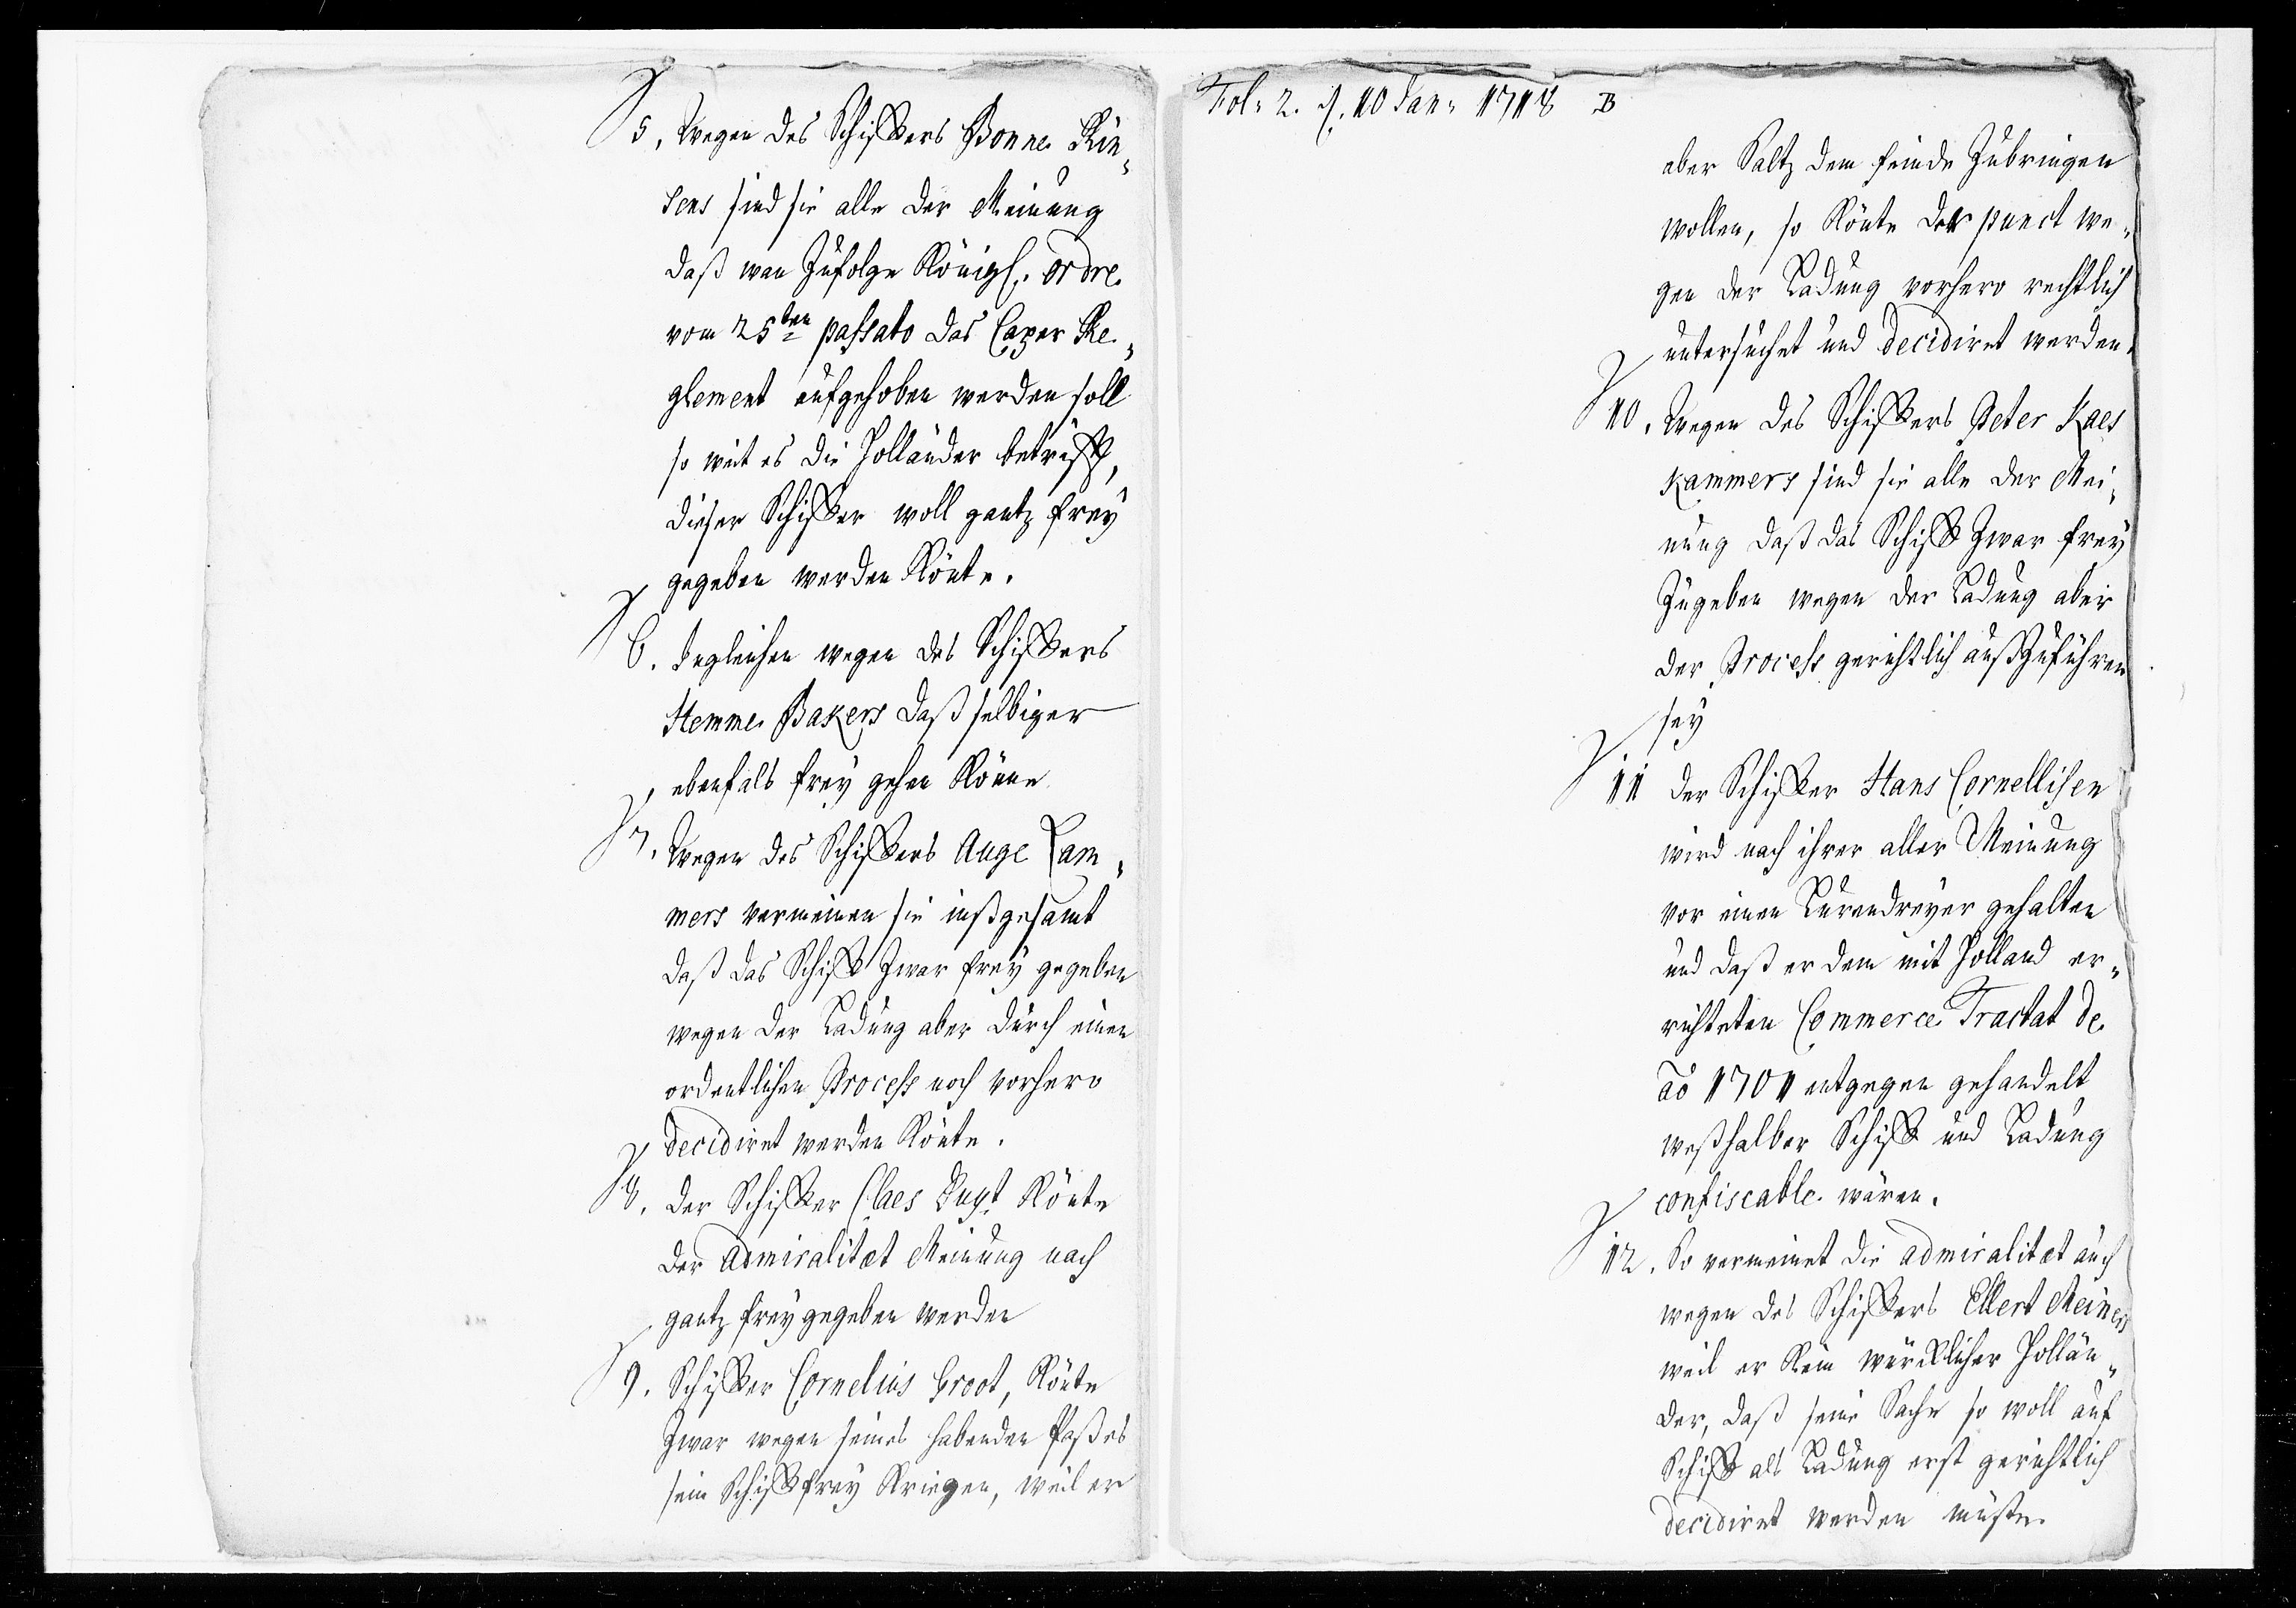 5. Wegen des Schiffers Bonne Rin-
sens sind sie alle der Meinung
daß wan zufolge Königl. ordre
vom 25ten passato das Caper Re-
glement aufgehoben werden soll
so weit es die Holländer betrifft,
dieser Schiffer woll gantz frey
gegeben werden könte.
6. Ingleichen wegen des Schiffers
Hemme Bakers daß selbiger
ebenfals frey gehen könne
7. Wegen des Schiffers Auge Lam-
mers vermeinen sie inßgesamt
daß das Schiff zwar frey gegeben
wegen der Ladung aber durch einen
ordentlichen Process noch vorhero
decidiret werden könte.
8. der Schiffer Claes Duyt könte
der Admiralitæt Meinung nach
gantz frey gegeben werden
9. Schiffer Cornelius Groot, könte
zwar wegen seines habenden Paßes
sein Schiff frey kriegen, weil er
Fol: 2. d. 10 Jan: 1718 B
aber Saltz dem feinde zubringen
wollen, so könte der punct we-
gen der Ladung vorhero rechtlich
untersuchet und decidiret werden.
10. Wegen des Schiffers Peter Kaes
Kammers sind sie alle der Mei-
nung daß das Schiff zwar frey
zugeben wegen der Ladung aber
der Process gerichtlich außzuführen
sey
11 der Schiffer Hans Cornellisen
wird nach ihrer aller Meinung
vor einen Lurendreyer gehalten
und daß er dem mit Holland er-
richteten Commerce Tractat de
ao 1701 entgegen gehandelt
weßhalber Schiff und Ladung
confiscable wären.
12. So vermeinet die admiralitæt auch
wegen des Schiffers Ellert Meiners
weil er kein würcklicher Hollän-
der, daß seine Sache so woll auf
Schiff als Ladung erst gerichtlich
decidiret werden müste.